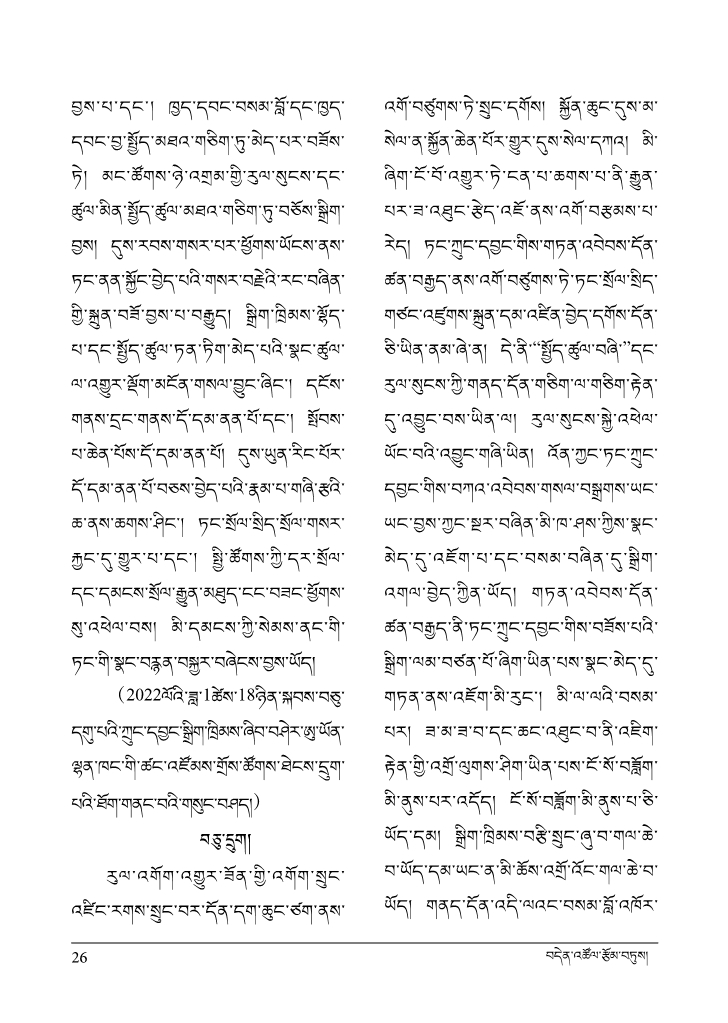 བྱས་པ་དང་། ཁྱད་དབང་བསམ་བློ་དང་ཁྱད་
དབང་བྱ་སྤྱོད་མཐའ་གཅིག་ཏུ་མེད་པར་བཟོས་
ཏེ། མང་ཚོགས་ཉེ་འགྲམ་གྱི་རུལ་སུངས་དང་
ཚུལ་མིན་སྤྱོད་ཚུལ་མཐའ་གཅིག་ཏུ་བཅོས་སྒྲིག་
བྱས། དུས་རབས་གསར་པར་ཕྱོགས་ཡོངས་ནས་
ཏང་ནན་སྐྱོང་བྱེད་པའི་གསར་བརྗེའི་རང་བཞིན་
གྱི་སྐྲུན་བཟོ་བྱས་པ་བརྒྱུད། སྒྲིག་ཁྲིམས་ལྷོད་
པ་དང་སྤྱོད་ཚུལ་ཏན་ཏིག་མེད་པའི་སྣང་ཚུལ་
ལ་འགྱུར་ལྡོག་མངོན་གསལ་བྱུང་ཞིང་། དངོས་
གནས་དྲང་གནས་དོ་དམ་ནན་པོ་དང་། སྤོབས་
པ་ཆེན་པོས་དོ་དམ་ནན་པོ། དུས་ཡུན་རིང་པོར་
དོ་དམ་ནན་པོ་བཅས་བྱེད་པའི་རྣམ་པ་གཞི་རྩའི་
ཆ་ནས་ཆགས་ཤིང་། ཏང་སྲོལ་སྲིད་སྲོལ་གསར་
རྐྱང་དུ་གྱུར་པ་དང་། སྤྱི་ཚོགས་ཀྱི་དར་སྲོལ་
དང་དམངས་སྲོལ་རྒྱུན་མཐུད་ངང་བཟང་ཕྱོགས་
སུ་འཕེལ་བས། མི་དམངས་ཀྱི་སེམས་ནང་གི་
ཏང་གི་སྣང་བརྙན་བསྐྱར་བཞེངས་བྱས་ཡོད།
(2022ལོའི་ཟླ་1ཚེས་18ཉིན་སྐབས་བཅུ་
དགུ་པའི་ཀྲུང་དབྱང་སྒྲིག་ཁྲིམས་ཞིབ་བཤེར་ཨུ་ཡོན་
ལྷན་ཁང་གི་ཚང་འཛོམས་གྲོས་ཚོགས་ཐེངས་དྲུག་
པའི་ཐོག་གནང་བའི་གསུང་བཤད།)
བཅུ་དྲུག
རུལ་འགོག་འགྱུར་ཟོན་གྱི་འགོག་སྲུང་
འཛིང་རགས་སྲུང་བར་དོན་དག་ཆུང་ཙག་ནས་
འགོ་བཙུགས་ཏེ་སྲུང་དགོས། སྐྱོན་ཆུང་དུས་མ་
སེལ་ན་སྐྱོན་ཆེན་པོར་གྱུར་དུས་སེལ་དཀའ། མི་
ཞིག་ངོ་བོ་འགྱུར་ཏེ་ངན་པ་ཆགས་པ་ནི་རྒྱུན་
པར་ཟ་འཐུང་རྩེད་འཇོ་ནས་འགོ་བརྩམས་པ་
རེད། ཏང་ཀྲུང་དབྱང་གིས་གཏན་འབེབས་དོན་
ཚན་བརྒྱད་ནས་འགོ་བཙུགས་ཏེ་ཏང་སྲོལ་སྲིད་
གཙང་འཛུགས་སྐྲུན་དམ་འཛིན་བྱེད་དགོས་དོན་
ཅི་ཡིན་ནམ་ཞེ་ན། དེ་ནི་“སྤྱོད་ཚུལ་བཞི་”དང་
རུལ་སུངས་ཀྱི་གནད་དོན་གཅིག་ལ་གཅིག་རྟེན་
དུ་འབྱུང་བས་ཡིན་ལ། རུལ་སུངས་སྐྱེ་འཕེལ་
ཡོང་བའི་འབྱུང་གཞི་ཡིན། འོན་ཀྱང་ཏང་ཀྲུང་
དབྱང་གིས་བཀའ་འབེབས་གསལ་བསྒྲགས་ཡང་
ཡང་བྱས་ཀྱང་སྔར་བཞིན་མི་ཁ་ཤས་ཀྱིས་སྣང་
མེད་དུ་འཇོག་པ་དང་བསམ་བཞིན་དུ་སྒྲིག་
འགལ་བྱེད་ཀྱིན་ཡོད། གཏན་འབེབས་དོན་
ཚན་བརྒྱད་ནི་ཏང་ཀྲུང་དབྱང་གིས་བཟོས་པའི་
སྒྲིག་ལམ་བཙན་པོ་ཞིག་ཡིན་པས་སྣང་མེད་དུ་
གཏན་ནས་འཇོག་མི་རུང་། མི་ལ་ལའི་བསམ་
པར། ཟ་མ་ཟ་བ་དང་ཆང་འཐུང་བ་ནི་འཇིག་
རྟེན་གྱི་འགྲོ་ལུགས་ཤིག་ཡིན་པས་ངོ་སོ་བཟློག་
མི་ནུས་པར་འདོད། ངོ་སོ་བཟློག་མི་ནུས་པ་ཅི་
ཡོད་དམ། སྒྲིག་ཁྲིམས་བརྩི་སྲུང་ཞུ་བ་གལ་ཆེ་
བ་ཡོད་དམ་ཡང་ན་མི་ཆོས་འགྲོ་འོང་གལ་ཆེ་བ་
ཡོད། གནད་དོན་འདི་ལའང་བསམ་བློ་འཁོར་
26
བདེན་འཚོལ་རྩོམ་བཏུས།